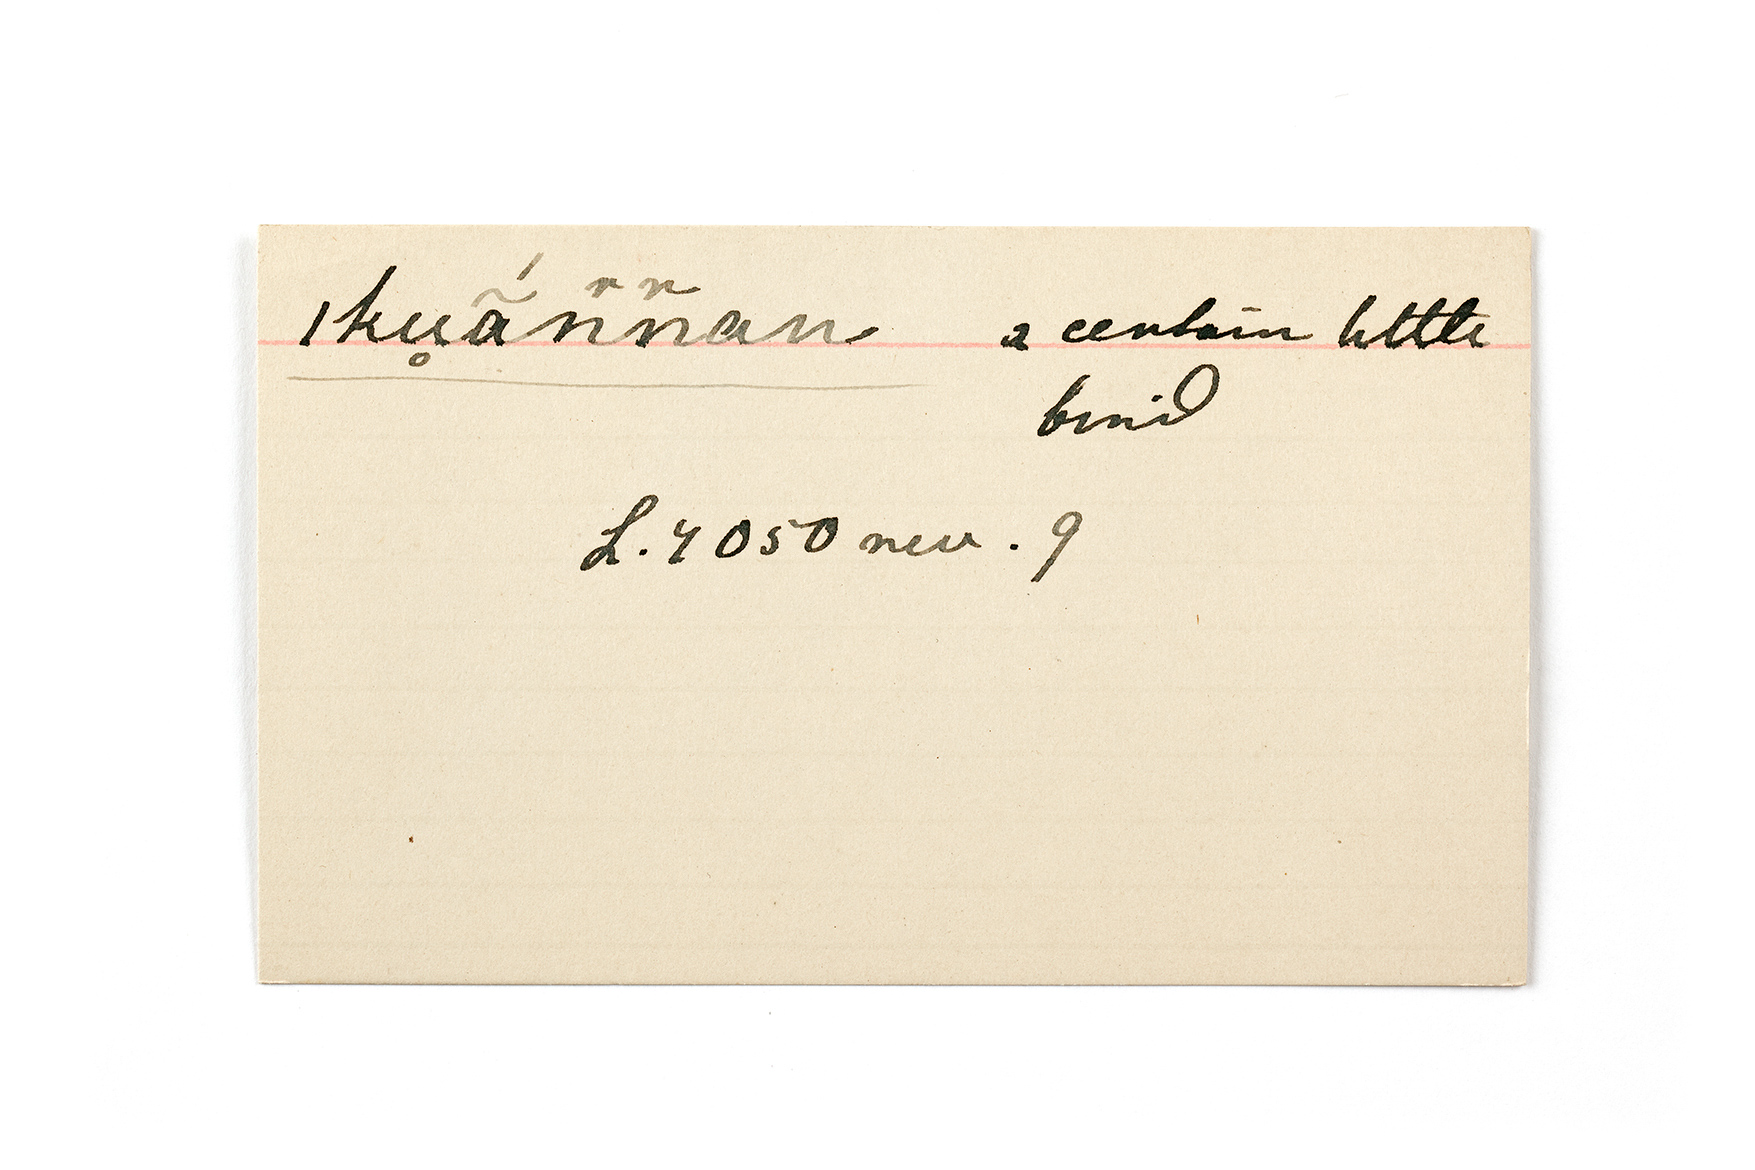 iku̥ã́n͂n͂an a certain little
bird
L. 4050 rev. 9